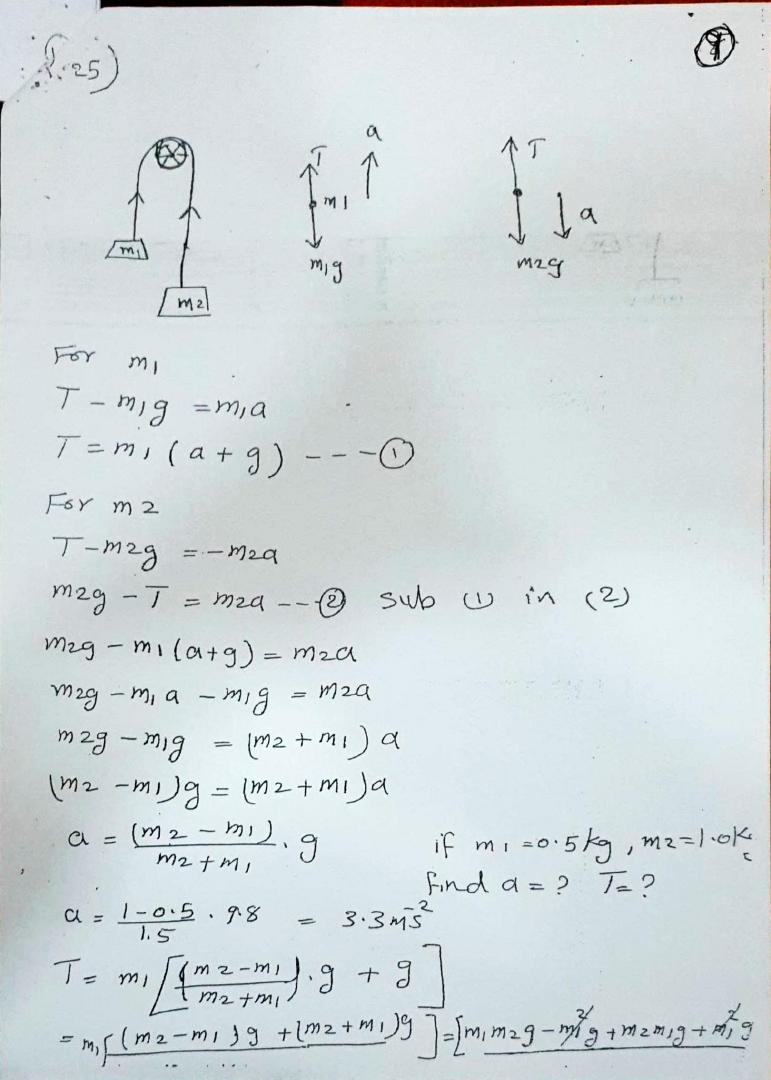 1.25)
a
T
T
m1
a
m1
m1g
m2g
m2
For m1
T - m1g = m1a
T = m1 (a + g) - - - ①
For m2
T - m2g = - m2a
m2g - T = m2a - - ② sub (1) in (2)
m2g - m1 (a+g) = m2a
m2g - m1 a - m1g = m2a
m2g - m1g = (m2 + m1) a
(m2 - m1)g = (m2 + m1)a
a = (m2 - m1) / m2 + m1 . g
if m1 = 0.5 kg, m2 = 1.0K
find a = ? T = ?
a = 1 - 0.5 / 1.5 . 9.8 = 3.3 ms⁻²
T = m1 [(m2 - m1 / m2 + m1) . g + g]
= m1 [(m2 - m1)g + (m2 + m1)g] = [m1m2g - m1²g + m2m1g + m1²g